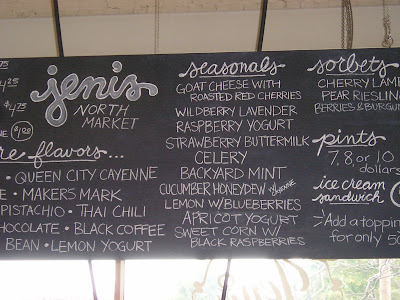 4.25
$4.75
$1.00
jeni's
NORTH
MARKET
flavors...
QUEEN CITY CAYENNE
• MAKERS MARK
PISTACHIO • THAI CHILI
CHOCOLATE • BLACK COFFEE
BEAN • LEMON YOGURT
seasonals
GOAT CHEESE WITH
ROASTED RED CHERRIES
WILDBERRY LAVENDER
RASPBERRY YOGURT
STRAWBERRY BUTTERMILK
CELERY
BACKYARD MINT
CUCUMBER HONEYDEW & CAYENNE
LEMON W/BLUEBERRIES
APRICOT YOGURT
SWEET CORN W/
BLACK RASPBERRIES
sorbets
CHERRY LAMB
PEAR RIESLING
BERRIES & BURGUN
pints
7, 8, or 10
dollars
ice cream
sandwich
Add a topping
for only 50